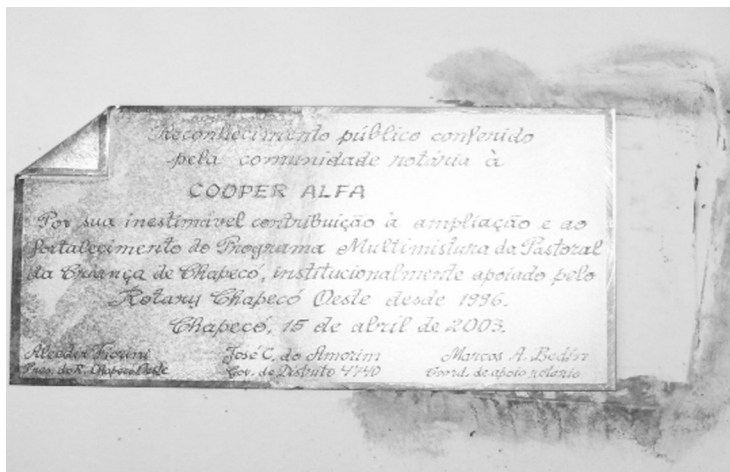 Reconhecimento público conferido
pela comunidade rotária à
COOPER ALFA
Por sua inestimável contribuição à ampliação e ao
fortalecimento do Programa Multimistura da Pastoral
da Criança de Chapecó, institucionalmente apoiado pelo
Rotary Chapecó Oeste desde 1996.
Chapecó, 15 de abril de 2003.
José C. do Amorim
Marcos A. Bedin
Pres. do R. Chapecó Oeste
Gov. do Distrito 4740
Coord. de apoio rotário